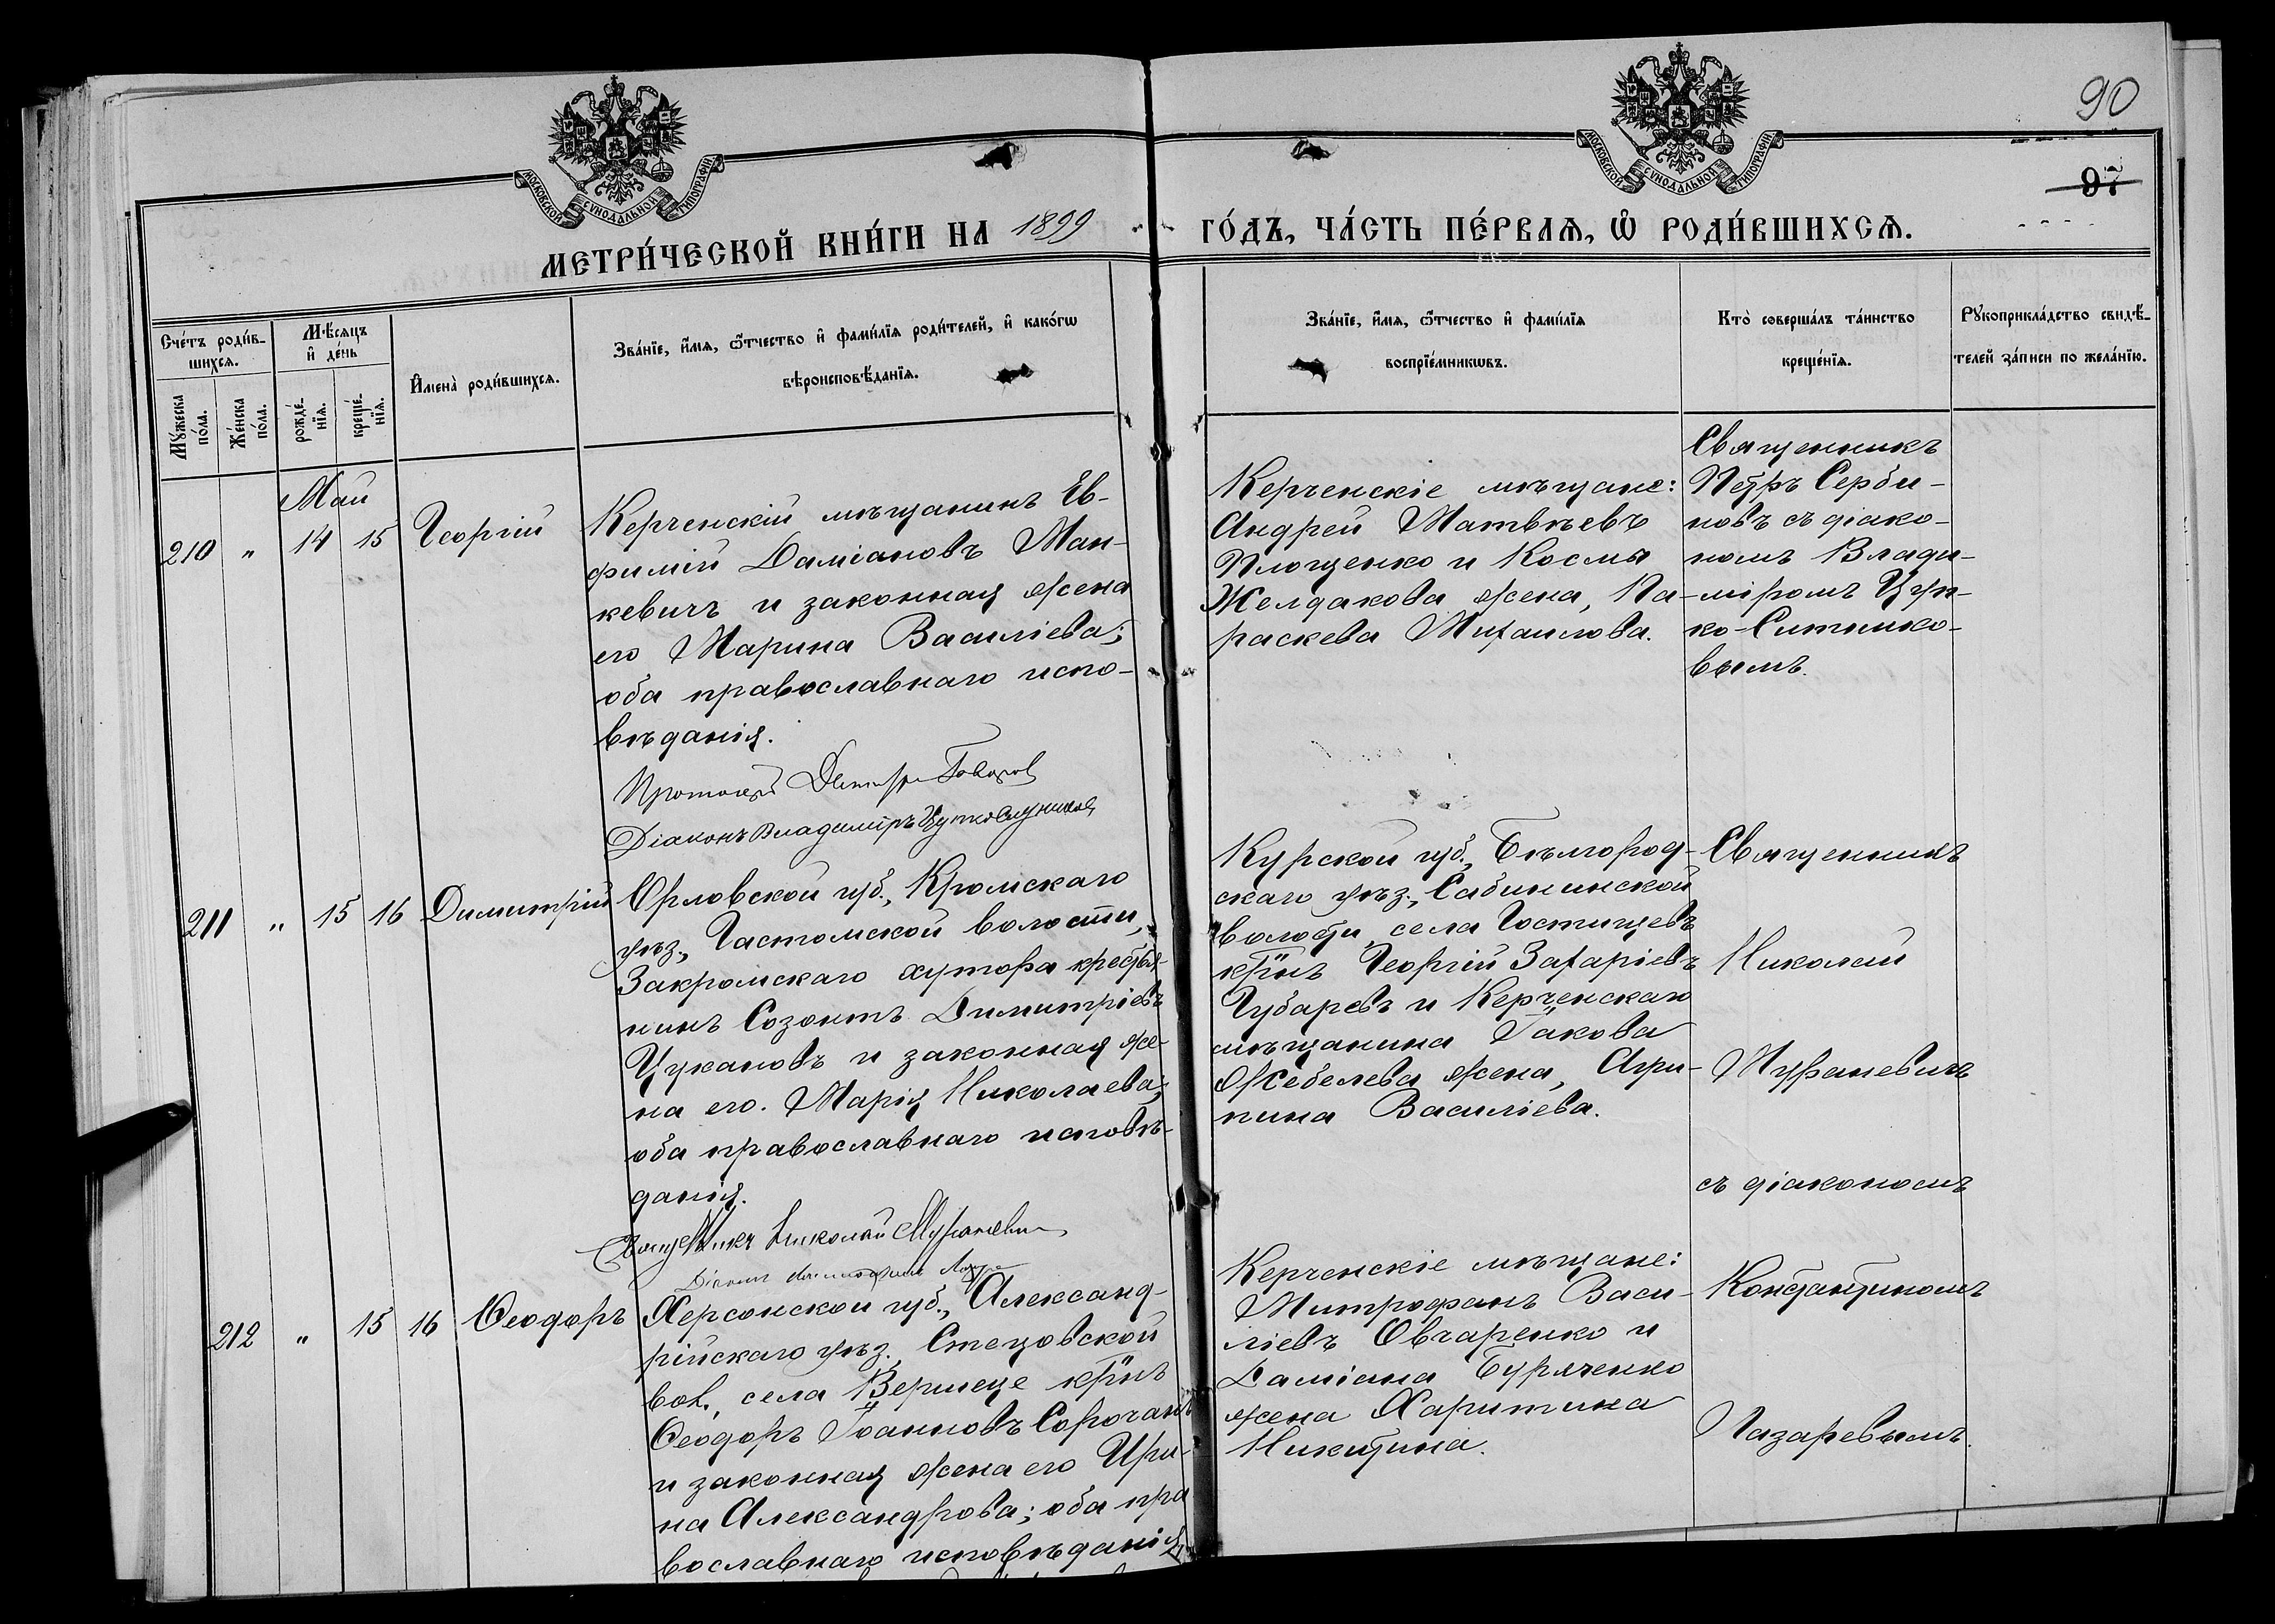 90
97
МОСКОВСКОЙ СУНОДАЛЬНОЙ ТИПОГРАФІИ
МОСКОВСКОЙ СУНОДАЛЬНОЙ ТИПОГРАФІИ
МЕТРИ́ЧЕСКОЙ КНИ́ГИ НА 1899
ГО́ДЪ, ЧА́СТЬ ПЕ́РВАѦ, Ѡ҆ РОДИ́ВШИХСѦ.
Сче́тъ роди́в-
шихсѧ.
Мꙋ́жеска
по́ла.
Же́нска
по́ла.
Мѣ́сяцъ
и҆ де́нь
рожде́-
нїѧ.
креще́-
нїѧ.
И҆мена̀ роди́вшихсѧ.
Зва́нїе, и҆́мѧ, ѻ҆́тчество и҆ фами́лїѧ роди́телей, и҆ како́гѡ
вѣроисповѣ́данїѧ.
Зва́нїе, и҆́мѧ, ѻ҆́тчество и҆ фами́лїѧ
воспрїе́мникѡвъ.
Кто̀ соверша́лъ та́инство
креще́нїѧ.
Рꙋкоприкла́дство свидѣ́-
телей за́писи по жела́нїю.
Май
210 " 14 15 Георгій
Керченскій мѣщанинъ Ев-
фимій Даміановъ Ман-
кевичъ и законная жена
его Марина Василіева;
оба православнаго испо-
вѣданія.
Протоіерей
Діаконъ Владиміръ
Керченскіе мѣщане:
Андрей Матвѣевъ
Площенко и Космы
Желдакова жена, Па-
раскева Михаилова.
Священникъ
Петръ Серби-
новъ съ діако-
номъ Влади-
міромъ Цуп-
ко-Ситнико-
вымъ.
211 " 15 16 Димитрій
Орловской губ., Кромскаго
уѣз., Гастомской волости,
Закромскаго хутора крестья-
нинъ Созонтъ Димитріевъ
Цукановъ и законная же-
на его Марія Николаева;
оба православнаго исповѣ-
данія.
Священникъ Николай Мураневич
Діаконъ
Курской губ., Бѣлгород-
скаго уѣз., Сабининской
волости, села Гостищевъ
кр̃нъ Георгій Захаріевъ
Губаревъ и Керченскаго
мѣщанина Іакова
Жебелева жена, Агри-
пина Василіева.
Священникъ
Николай
Мураневичъ
съ діакономъ
Константиномъ
Лазаревымъ.
212 " 15 16 Ѳеодоръ
Херсонской губ., Александ-
рійскаго уѣз. Стецовской
вол., села Вершеце кр̃нъ
Ѳеодоръ Іоанновъ Сорочанъ
и законная жена его Ири-
на Александрова; оба пра
вославнаго исповѣданія
Керченскіе мѣщане:
Митрофанъ Васи-
ліевъ Овчаренко и
Даміана Буряченко
жена Харитина
Никитина.